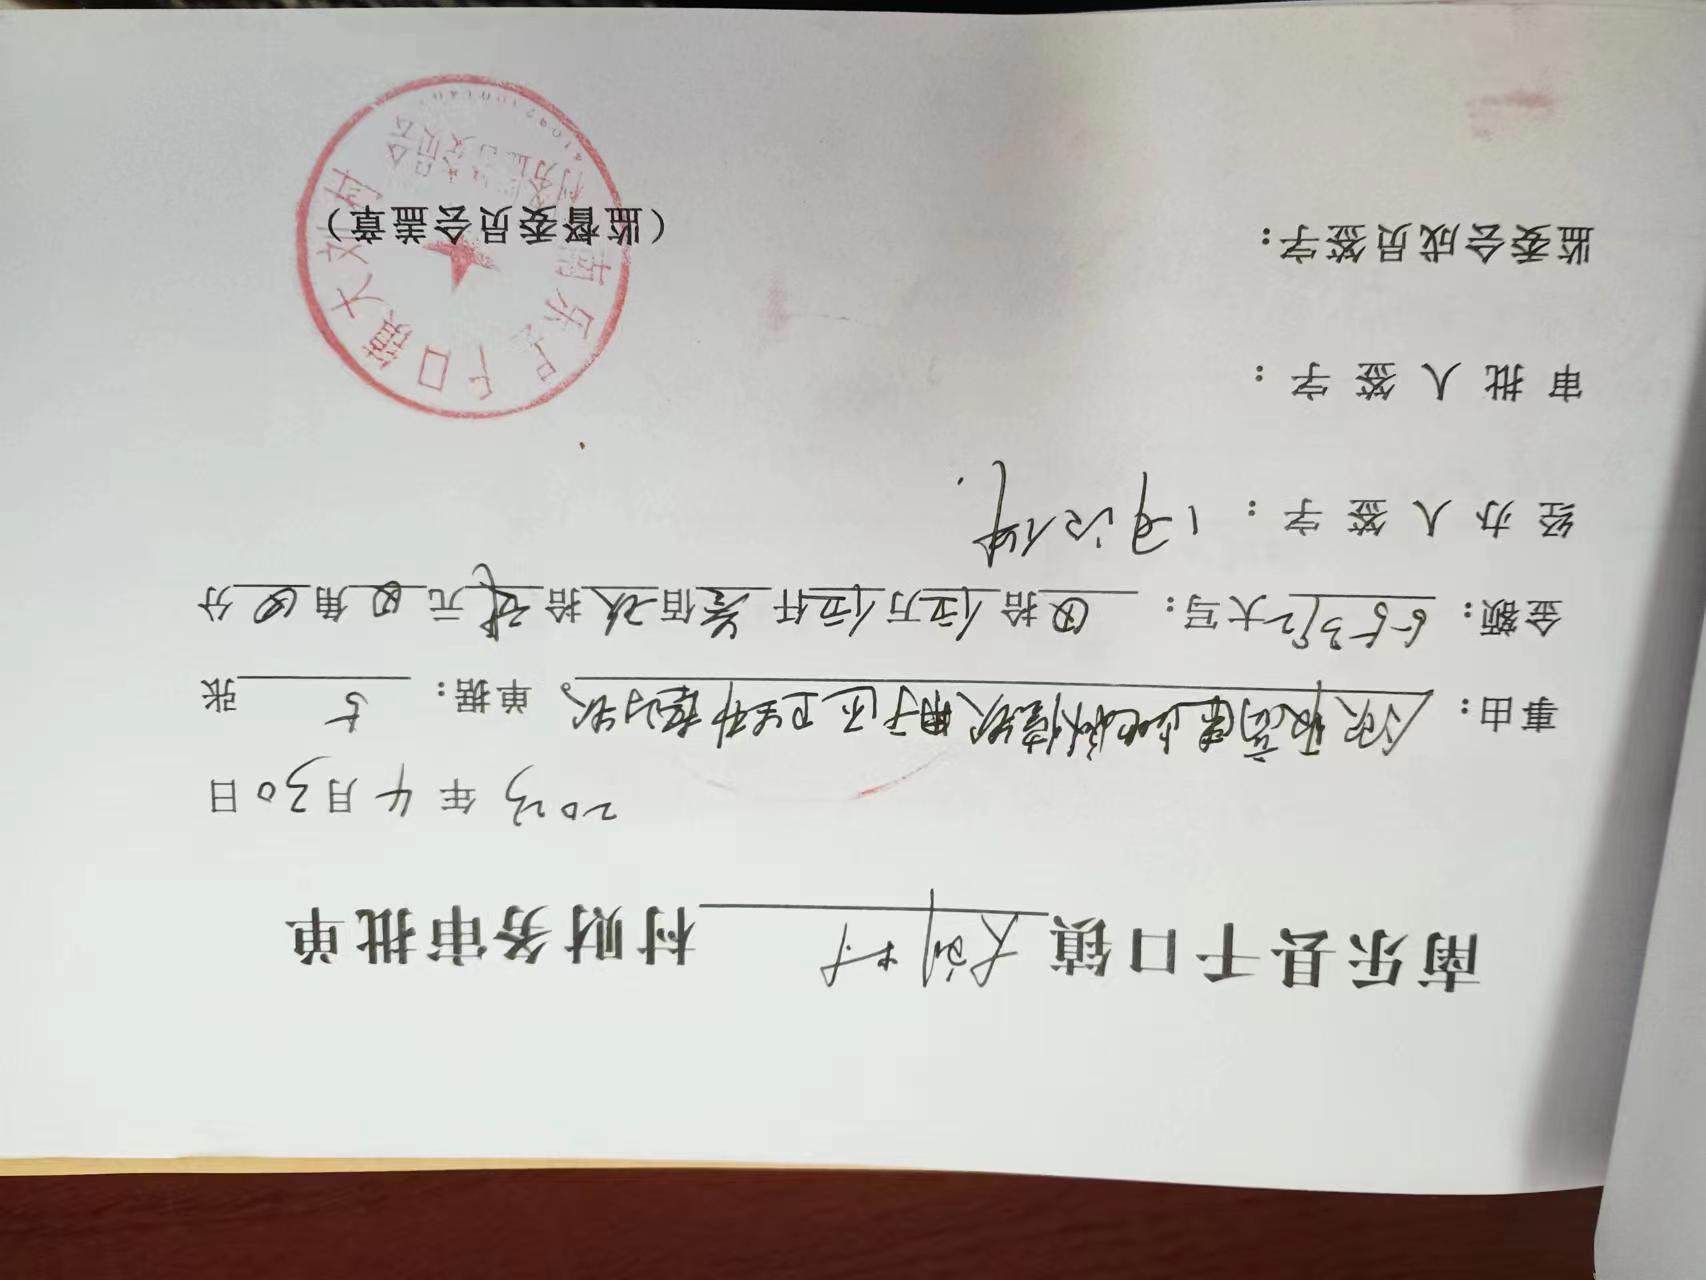 南乐县千口镇大刘村村财务审批单
2023年4月30日
事由：领取高速占地补偿款用于还卫生部垫付款。单据：5张
金额：55392大写：⊗拾伍万伍仟叁佰玖拾贰元⊗角⊗分
经办人签字：
审批人签字：
监委会成员签字：
（监督委员会盖章）
南乐县千口镇大刘村